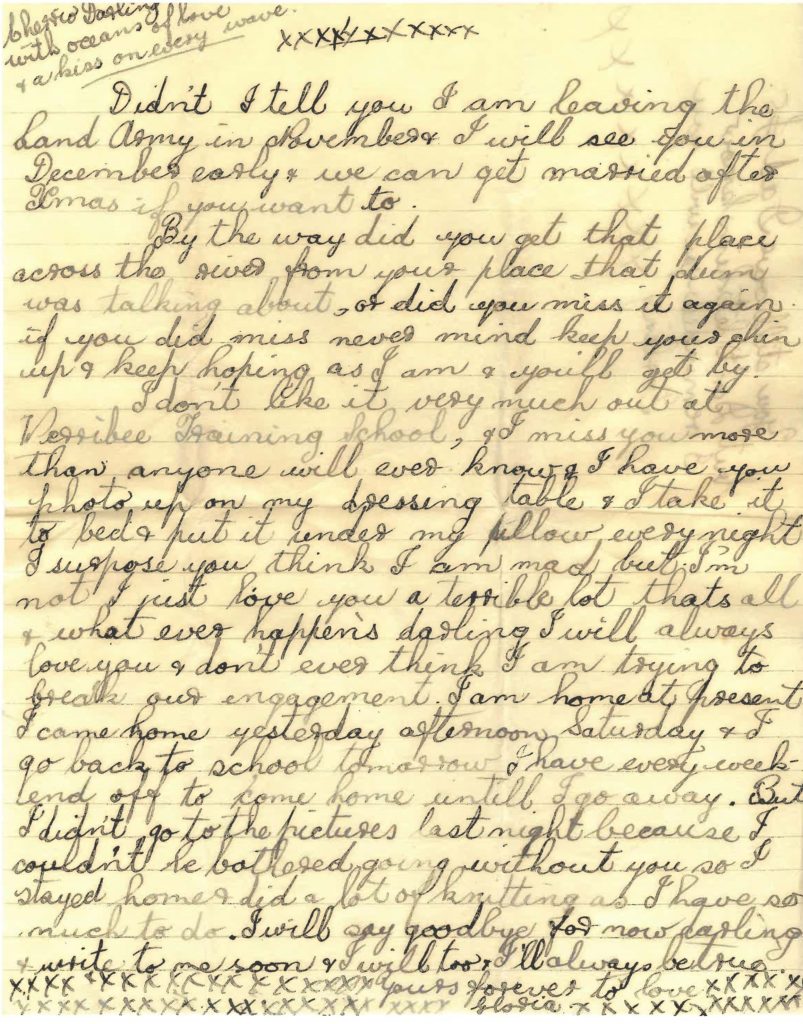 Cherrio Darling
with oceans of love
& a kiss on every wave.
xxxxxxxxxxx
Didn't I tell you I am leaving the
Land Army in November & I will see you in
December early & we can get married after
Xmas if you want to.
By the way did you get that place
across the river from your place that dum
was talking about, or did you miss it again
if you did miss never mind keep your chin
up & keep hoping as I am & you'll get by.
I don't like it very much out at
Werribee Training School, & I miss you more
than anyone will ever know & I have you
photo up on my dressing table & I take it
to bed & put it under my pillow every night
I surpose you think I am mad but I'm
not I just love you a terrible lot thats all
& what ever happen's darling I will always
love you & don't ever think I am trying to
break our engagement. I am home at present
I came home yesterday afternoon Saturday & I
go back to school tomorrow I have every week-
end off to come home untill I go away. But
I didn't go to the pictures last night because I
couldn't be bothered going without you so I
stayed home & did a lot of knitting as I have so
much to do. I will say goodbye for now darling
& write to me soon & I will too, I'll always be true.
xxxx xxxxxxxxxxxxxx yours forever to love xxxxxx
xxxxxxxxxxxxxxxx xxxx Gloria xxxxxxxx